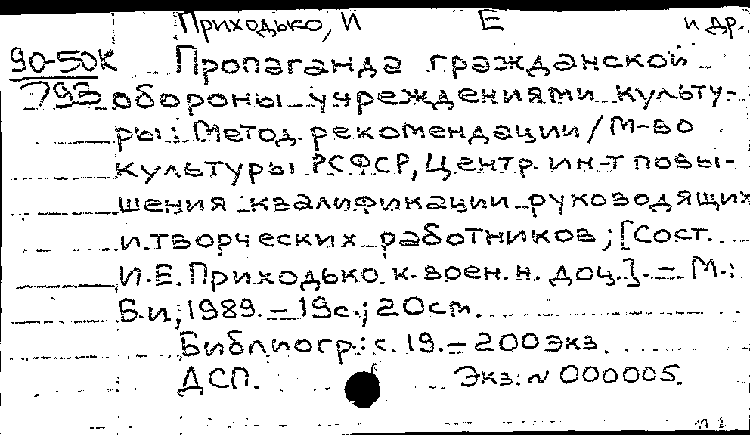 Приходько, И Е и др.
90-50К Пропаганда гражданской
793 обороны учреждениями культу-
ры: Метод. рекомендации / М-во
культуры РСФСР, Центр. ин-т повы-
шения квалификации руководящих
и творческих работников; [Сост.
И.Е. Приходько к. воен. н. доц.]. – М.:
Б.и., 1989. – 19с.; 20см.
Библиогр.: с. 19. – 200 экз.
ДСП. Экз: № 000005.